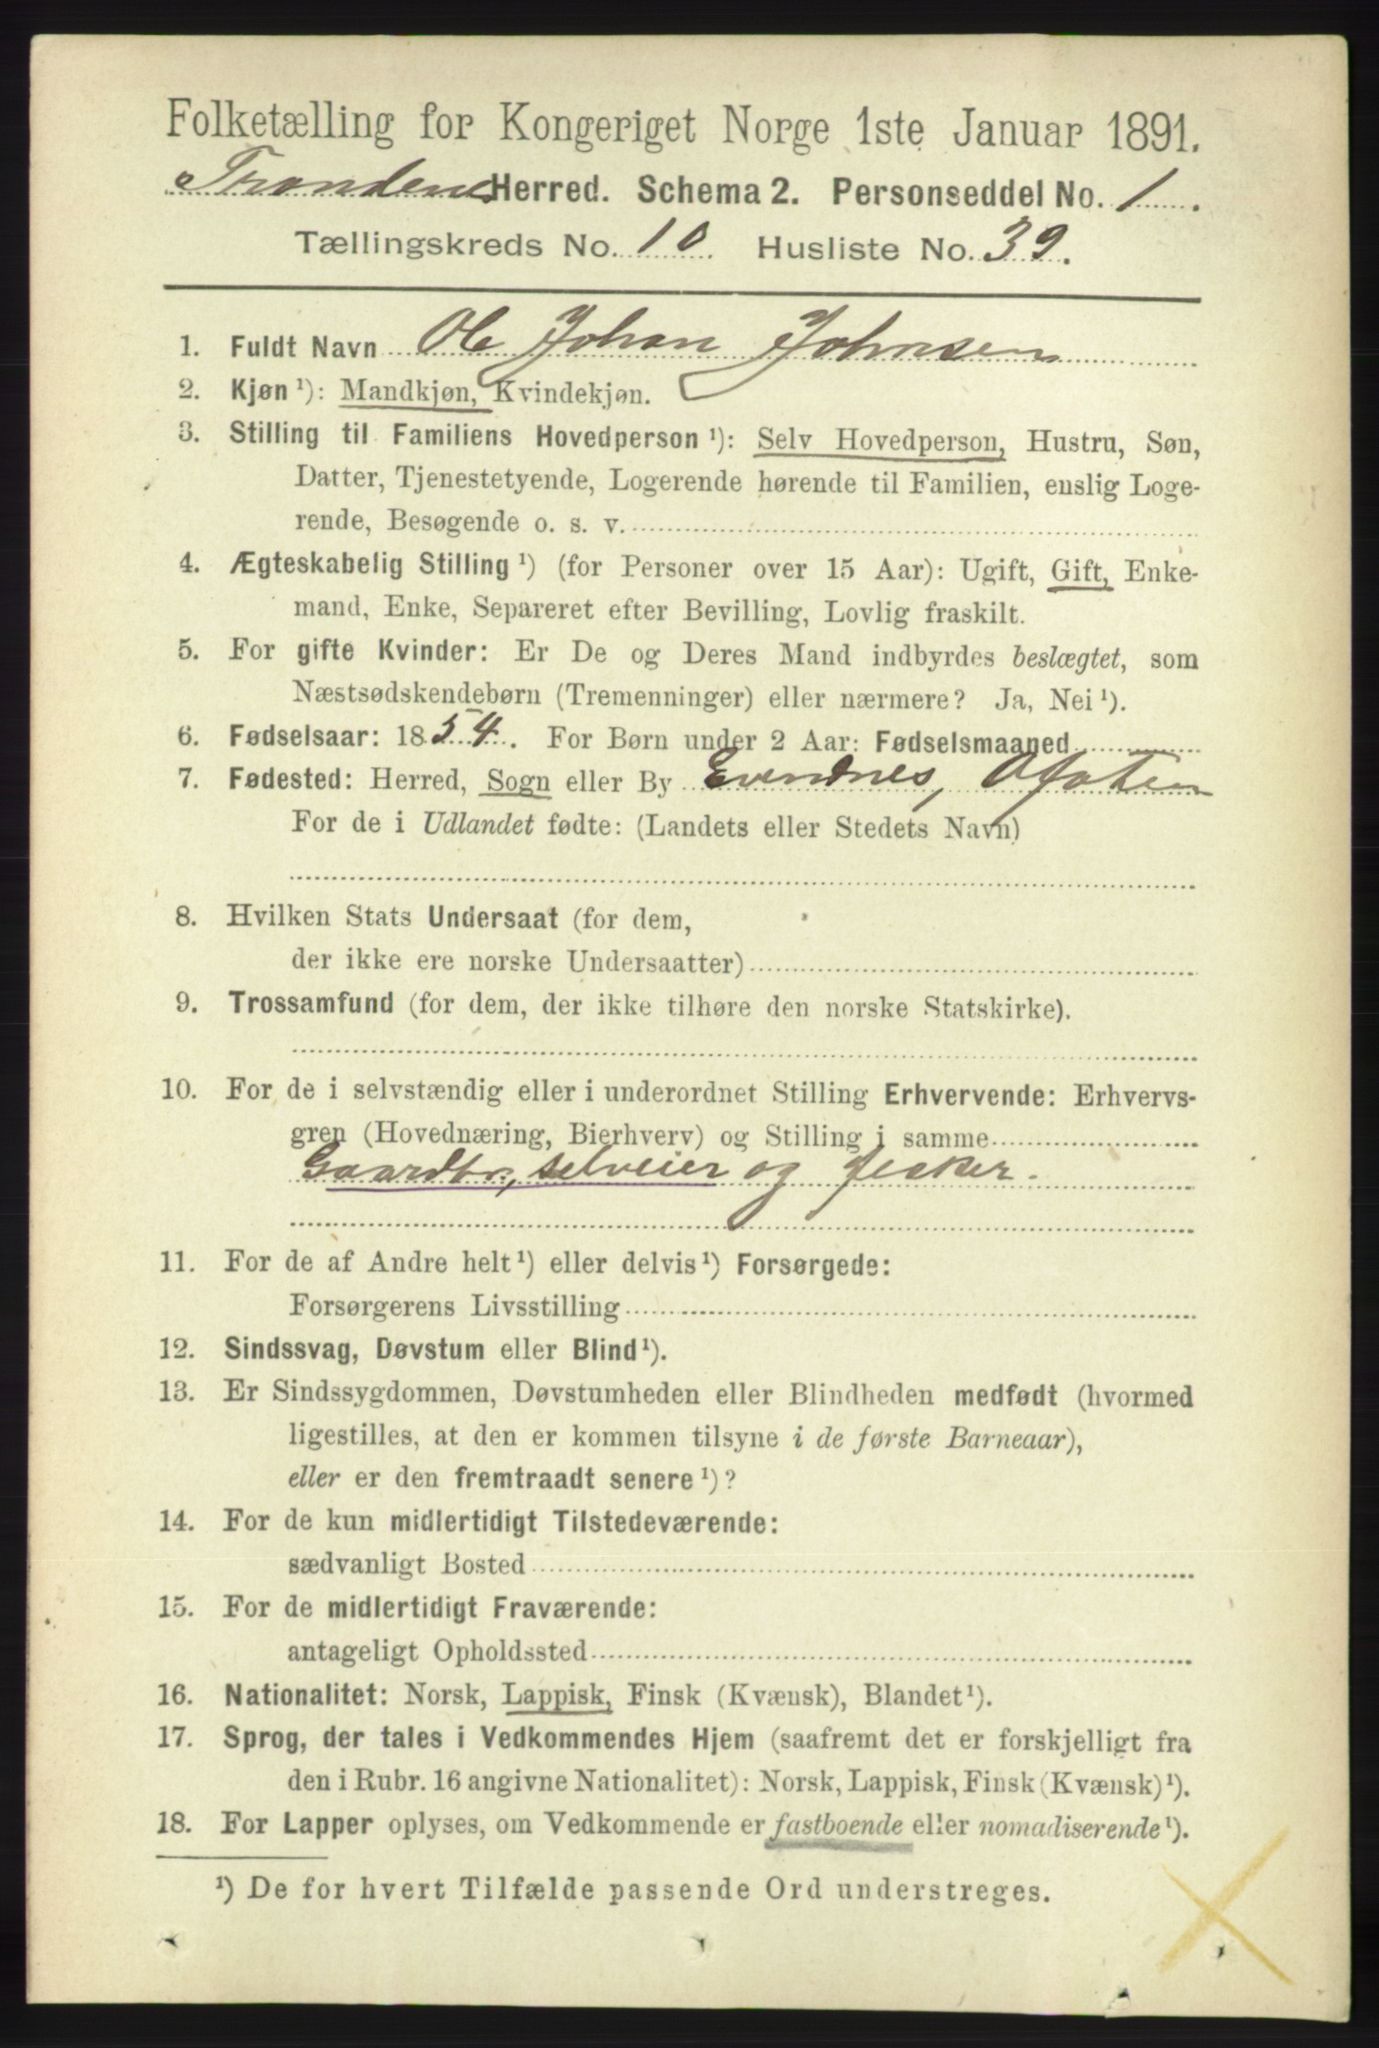 Folketælling for Kongeriget Norge 1ste Januar 1891.
Trondenes Herred. Schema 2. Personseddel No. 1.
Tællingskreds No. 10 Husliste No. 39.
1. Fuldt Navn Ole Johan Johnsen
2. Kjøn ¹): Mandkjøn, Kvindekjøn.
3. Stilling til Familiens Hovedperson ¹): Selv Hovedperson, Hustru, Søn,
Datter, Tjenestetyende, Logerende hørende til Familien, enslig Loge-
rende, Besøgende o. s. v.
4. Ægteskabelig Stilling ¹) (for Personer over 15 Aar): Ugift, Gift, Enke-
mand, Enke, Separeret efter Bevilling, Lovlig fraskilt.
5. For gifte Kvinder: Er De og Deres Mand indbyrdes beslægtet, som
Næstsødskendebørn (Tremenninger) eller nærmere? Ja, Nei ¹).
6. Fødselsaar: 1854. For Børn under 2 Aar: Fødselsmaaned
7. Fødested: Herred, Sogn eller By Evendnes, Ofoten
For de i Udlandet fødte: (Landets eller Stedets Navn)
8. Hvilken Stats Undersaat (for dem,
der ikke ere norske Undersaatter)
9. Trossamfund (for dem, der ikke tilhøre den norske Statskirke).
10. For de i selvstændig eller i underordnet Stilling Erhvervende: Erhvervs-
gren (Hovednæring, Bierhverv) og Stilling i samme
Gaardbr., selveier og fisker.
11. For de af Andre helt ¹) eller delvis ¹) Forsørgede:
Forsørgerens Livsstilling
12. Sindssvag, Døvstum eller Blind ¹).
13. Er Sindssygdommen, Døvstumheden eller Blindheden medfødt (hvormed
ligestilles, at den er kommen tilsyne i de første Barneaar),
eller er den fremtraadt senere ¹)?
14. For de kun midlertidigt Tilstedeværende:
sædvanligt Bosted
15. For de midlertidigt Fraværende:
antageligt Opholdssted
16. Nationalitet: Norsk, Lappisk, Finsk (Kvænsk), Blandet ¹).
17. Sprog, der tales i Vedkommendes Hjem (saafremt det er forskjelligt fra
den i Rubr. 16 angivne Nationalitet): Norsk, Lappisk, Finsk (Kvænsk) ¹).
18. For Lapper oplyses, om Vedkommende er fastboende eller nomadiserende ¹).
¹) De for hvert Tilfælde passende Ord understreges.